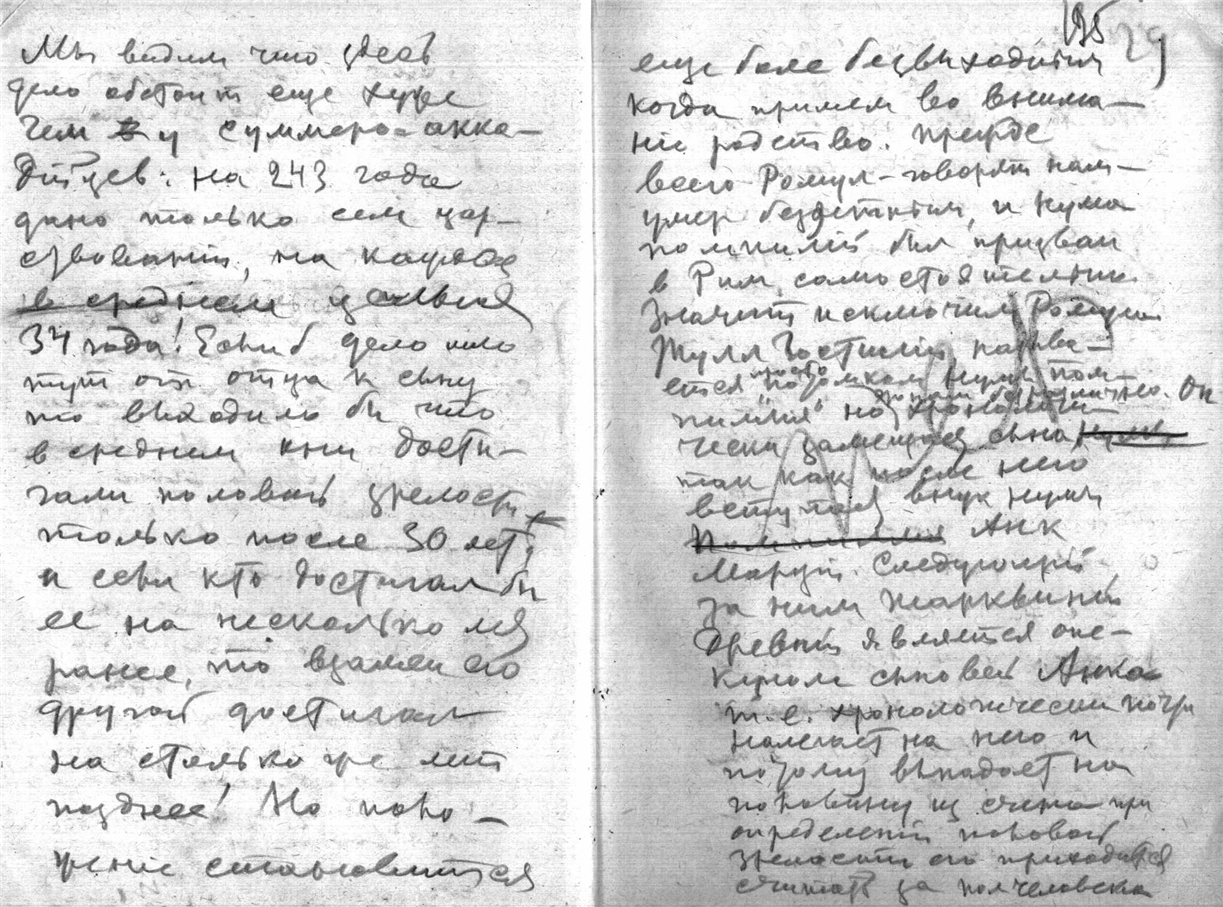 Мы видим что здесь
дело обстоит еще хуже
чем у суммеро-акка-
дийцев: на 243 года
дано только семь цар-
ствований, на каждое
в среднем
34 года! Если б дело шло
тут от отца к сыну
то выходило бы что
в среднем они дости-
гали половой зрелости
только после 30 лет,
и если кто достигал бы
ее на несколько лет
ранее, то взамен его
другой достигал
на столько же лет
позднее! Но поло-
жение становится
195 29
еще боле безвыходным
когда примем во внима-
ние родство. Прежде
всего Ромул - говорят нам -
умер бездетным, и Нума
Помпилий был призван
в Рим самостоятельно.
Значит исключим Ромула.
Тулл Гостилий, называ-
ется просто потомком Нумы Пом-
пилия но хронологи- Он
чески сына
так как после него
вступает внук Нумы
Помпилия Анк
Марций. Следующий
за ним Тарквиний
Древний является опе-
куном сыновей Анка
т.е. хронологически почти
налегает на него и
потому выпадает на
половину из счета при
определении половой
зрелости его приходится
считать за полчеловека